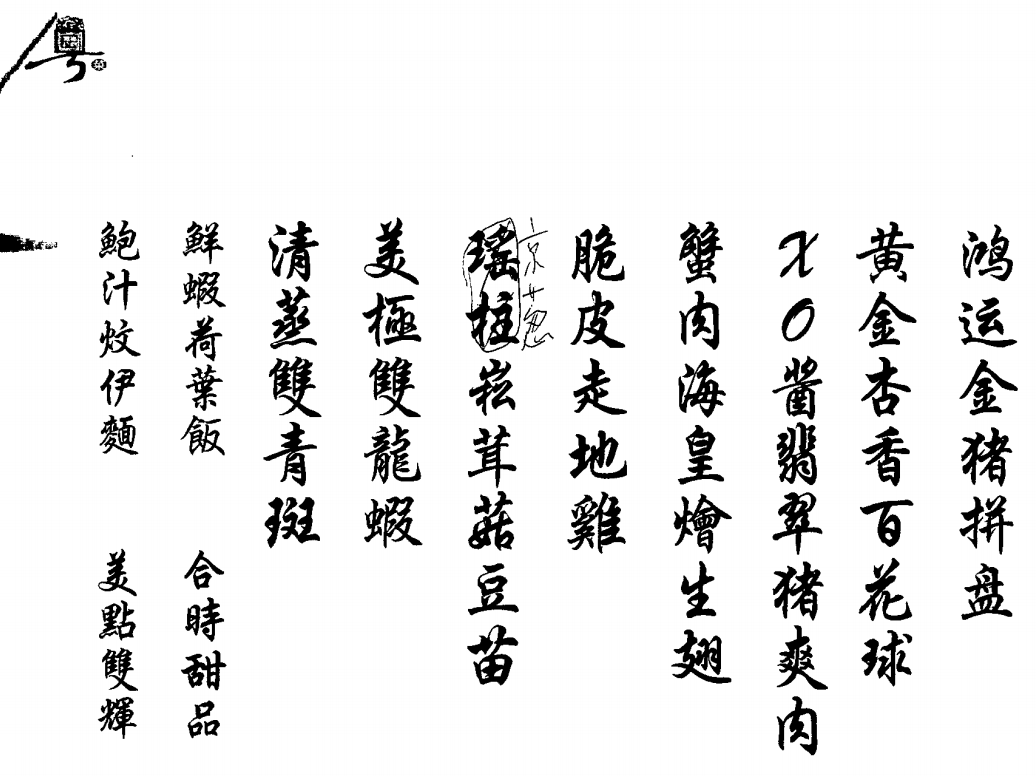 鸿运金猪拼盘
黄金杏香百花球
XO酱翡翠猪爽肉
蟹肉海皇燴生翅
脆皮走地雞
瑤柱崧茸菇豆苗
美極雙龍蝦
清蒸雙青斑
鮮蝦荷葉飯
合時甜品
鮑汁炆伊麵
美點雙輝
粤